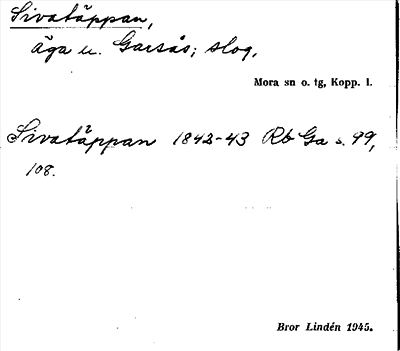 Sivatäppan,
äga u. Garsås; slog.
Mora sn o. tg, Kopp. l.
Sivatäppan 1842-43 Rb Ga s. 99,
108.
Bror Lindén 1945.